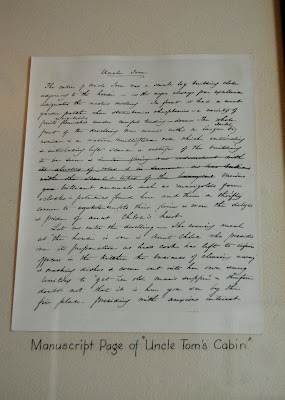 Uncle Tom
The cabin of Uncle Tom was a small log building close
adjoining to the house — as the negro always par excellence
designates the masters dwelling. In front it had a neat
garden patch where strawberries raspberries & a variety of
fruits flourished under careful tending The whole
front of the dwelling was covered with a large big
nonia & a native multiflora rose which entwisting
& interlacing left scarce a vestige of the building
to be seen
brilliant annuals such as marigolds four
o'clocks & petunias found here and there a thrifty
corner to vegetate & were the delight
& pride of aunt Chloe's heart.
Let us enter the dwelling — The evening meal
at the house is over & Aunt Chloe who presided
over its preparation as head cook has left to inferior
officers in the kitchen the business of clearing away
& washing dishes & come out into her own snug
territories to "get her old man's supper" & therefore
doubt not that it is her you see by the
fire place presiding with anxious interest
Manuscript Page of "Uncle Tom's Cabin"